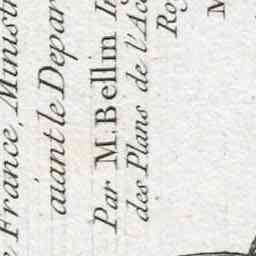 France, Ministr
aiant le Depar
Par M. Bellin In
des Plans de l'Ac
Ro
M